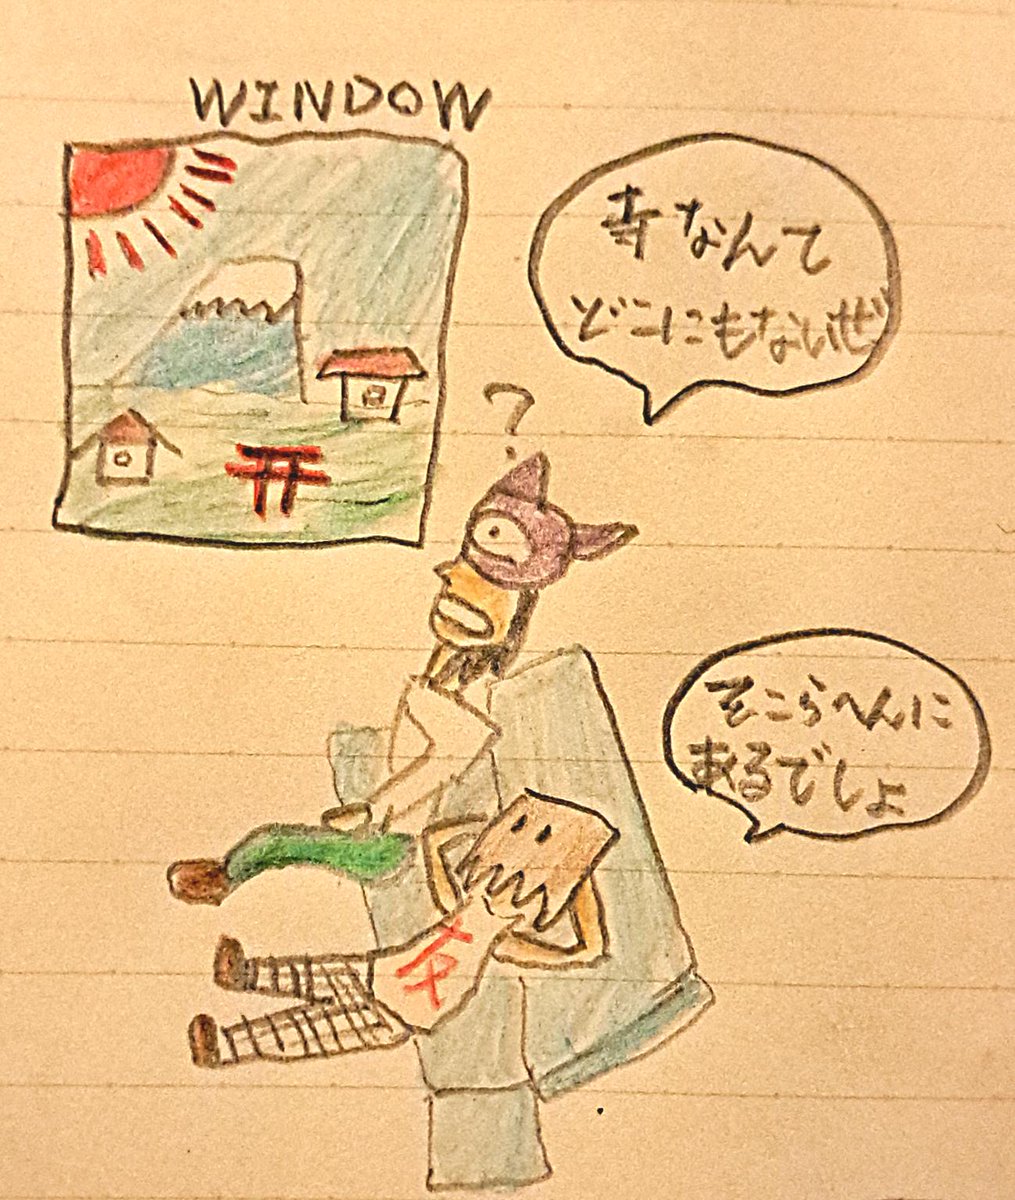 WINDOW
寺なんて
どこにもないぜ
?
そこらへんに
あるでしょ